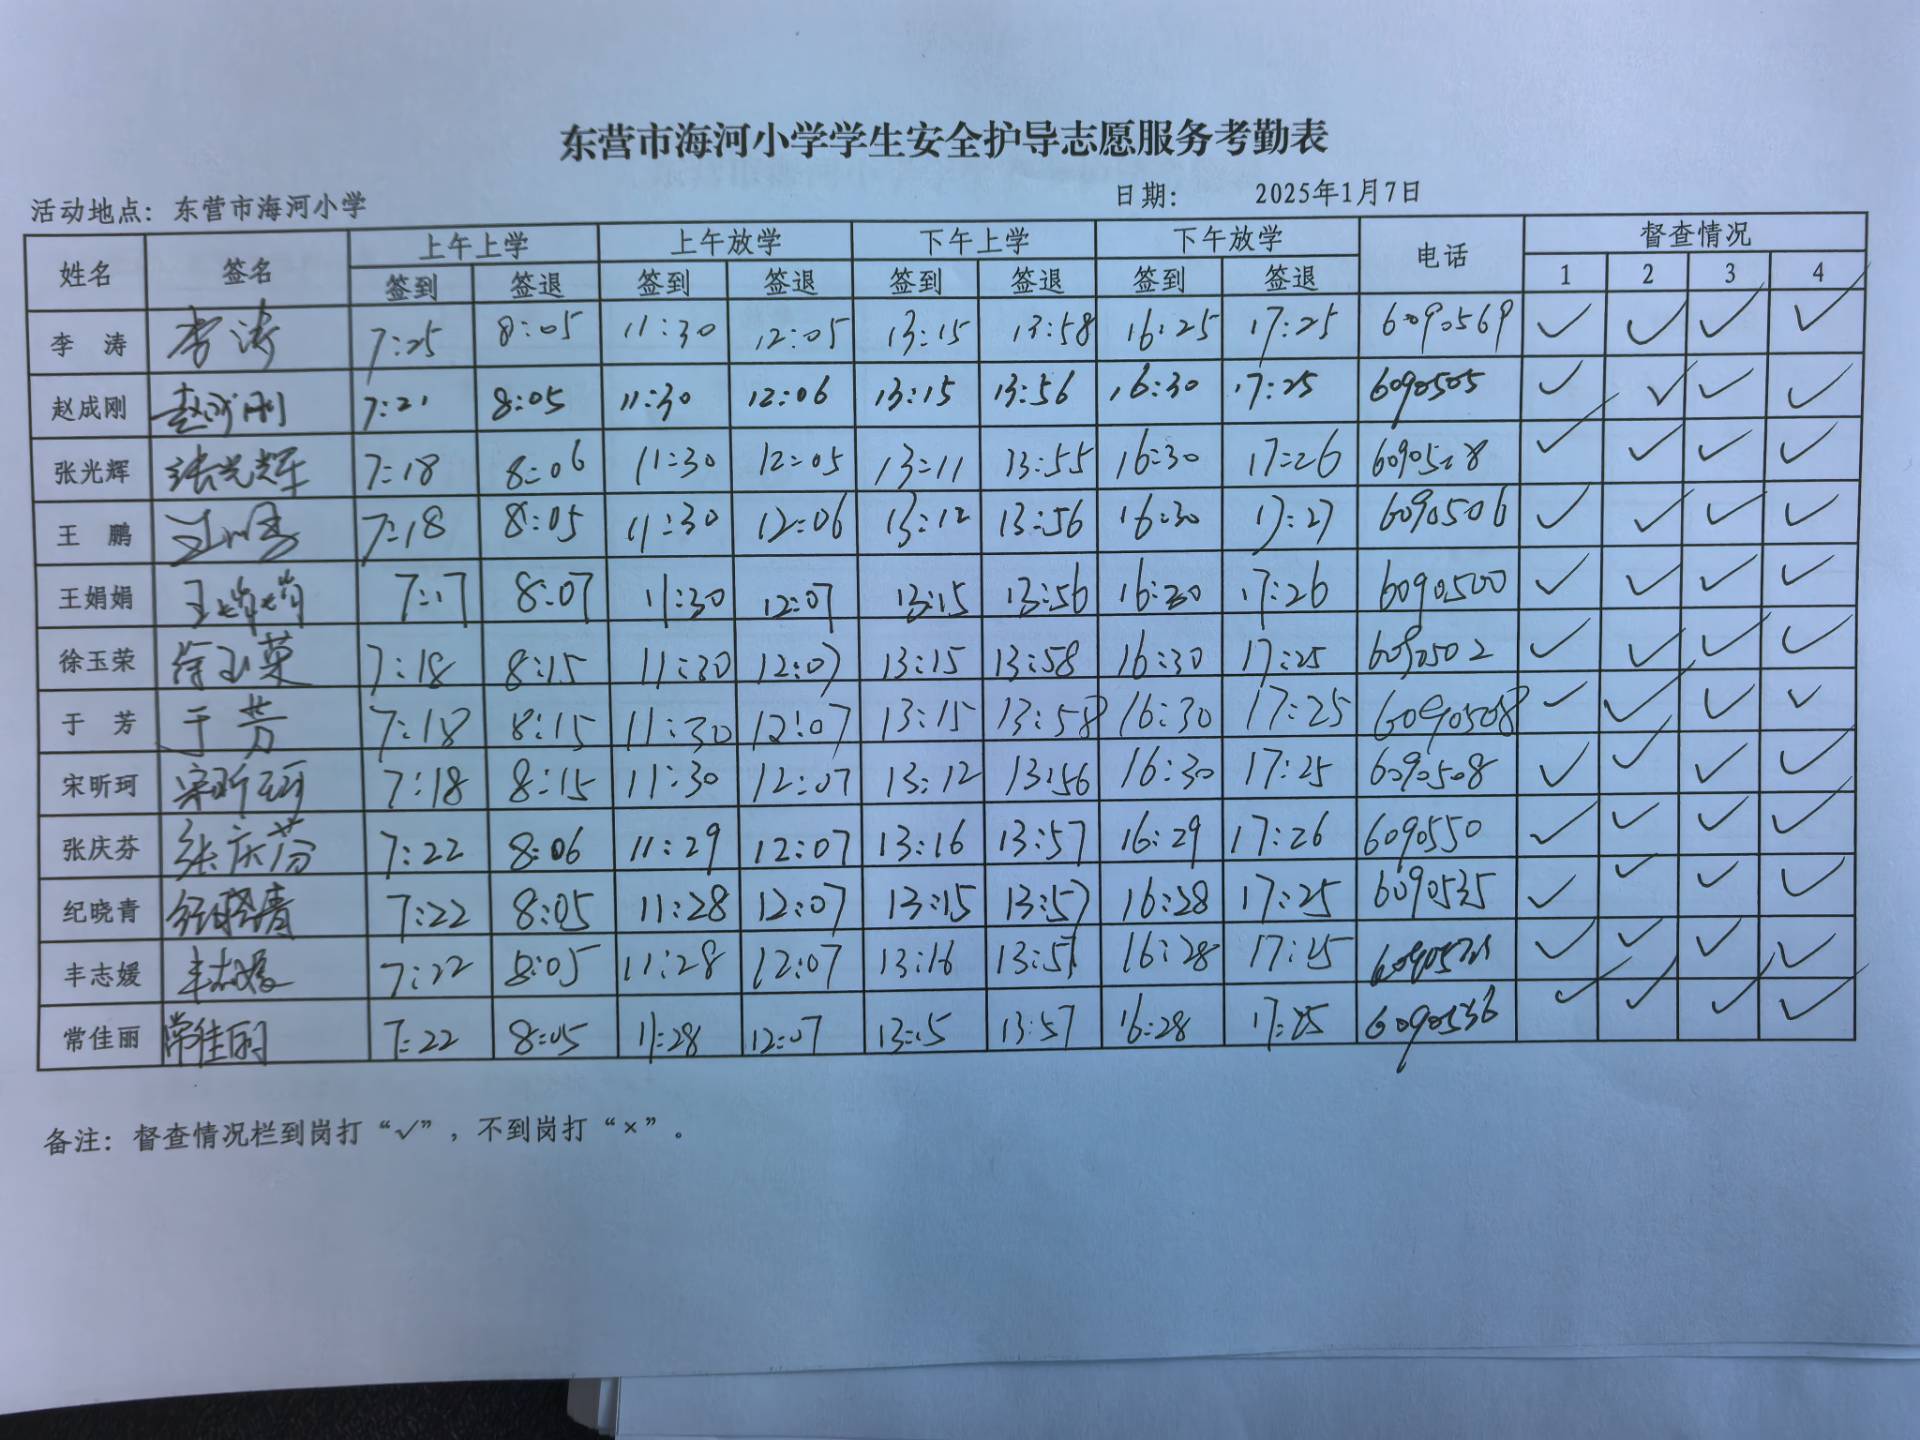 东营市海河小学学生安全护导志愿服务考勤表
活动地点：东营市海河小学 日期： 2025年1月7日
姓名 签名 上午上学 上午放学 下午上学 下午放学 电话 督查情况
签到 签退 签到 签退 签到 签退 签到 签退 1 2 3 4
李涛 李涛 7:25 8:05 11:30 12:05 13:15 13:58 16:25 17:25 6090569 ✓ ✓ ✓ ✓
赵成刚 赵成刚 7:21 8:05 11:30 12:06 13:15 13:56 16:30 17:25 6090505 ✓ ✓ ✓ ✓
张光辉 张光辉 7:18 8:06 11:30 12:05 13:11 13:55 16:30 17:26 6090528 ✓ ✓ ✓ ✓
王鹏 王鹏 7:18 8:05 11:30 12:06 13:12 13:56 16:30 17:27 6090506 ✓ ✓ ✓ ✓
王娟娟 王娟娟 7:17 8:07 11:30 12:07 13:15 13:56 16:30 17:26 6090500 ✓ ✓ ✓ ✓
徐玉荣 徐玉荣 7:18 8:15 11:30 12:07 13:15 13:58 16:30 17:25 6090502 ✓ ✓ ✓ ✓
于芳 于芳 7:18 8:15 11:30 12:07 13:15 13:58 16:30 17:25 6090508 ✓ ✓ ✓ ✓
宋昕珂 宋昕珂 7:18 8:15 11:30 12:07 13:12 13:56 16:30 17:25 6090508 ✓ ✓ ✓ ✓
张庆芬 张庆芬 7:22 8:06 11:29 12:07 13:16 13:57 16:29 17:26 6090550 ✓ ✓ ✓ ✓
纪晓青 纪晓青 7:22 8:05 11:28 12:07 13:15 13:57 16:28 17:25 6090535 ✓ ✓ ✓ ✓
丰志媛 丰志媛 7:22 8:05 11:28 12:07 13:16 13:57 16:28 17:25 ✓ ✓ ✓ ✓
常佳丽 常佳丽 7:22 8:05 11:28 12:07 13:15 13:57 16:28 17:25 6090536 ✓ ✓ ✓ ✓
备注：督查情况栏到岗打“✓”，不到岗打“×”。